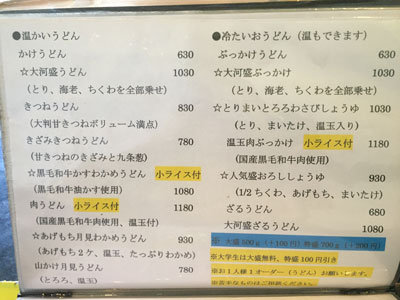 ●温かいうどん
かけうどん 630
☆大河盛うどん 1030
(とり、海老、ちくわを全部乗せ)
きつねうどん 830
(大判甘きつねボリューム満点)
きざみきつねうどん 780
(甘きつねのきざみと九条葱)
☆黒毛和牛かすわかめうどん 小ライス付
(黒毛和牛油かす使用) 1080
肉うどん 小ライス付 1180
(国産黒毛和牛肉使用、温玉付)
☆あげもち月見わかめうどん 930
(あげもち2ケ、温玉、たっぷりわかめ)
山かけ月見うどん 780
(とろろ、温玉)
●冷たいおうどん(温もできます)
ぶっかけうどん 630
☆大河盛ぶっかけ 1030
(とり、海老、ちくわを全部乗せ)
☆とりまいとろろわさびしょうゆ 1030
(とり、まいたけ、温玉入り)
温玉肉ぶっかけ 小ライス付 1180
(国産黒毛和牛肉使用)
☆人気盛おろししょうゆ 930
(1/2ちくわ、あげもち、まいたけ)
ざるうどん 680
大河盛ざるうどん 1080
※ 大盛500g(+100円)特盛700g(+200円)
※大学生は大盛無料、特盛100円引き
※お1人様1オーダー(うどん)お願いします。